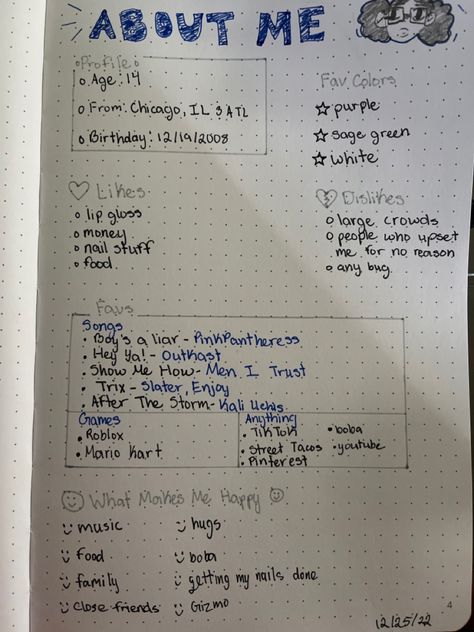 ABOUT ME
Profile
Age: 14
From: Chicago, IL & ATL
Birthday: 12/19/2008
Fav Colors
purple
sage green
white
Likes
lip gloss
money
nail stuff
food
Dislikes
large crowds
people who upset
me for no reason
any bug
Favs
Songs
Boy's a liar - PinkPantheress
Hey Ya! - Outkast
Show Me How - Men I Trust
Trix - Slater, Enjoy
After The Storm - Kali Uchis
Games
Roblox
Mario Kart
Anything
TikTok
Street Tacos
Pinterest
boba
youtube
What Makes Me Happy
music
food
family
close friends
hugs
boba
getting my nails done
Gizmo
4
12/25/22